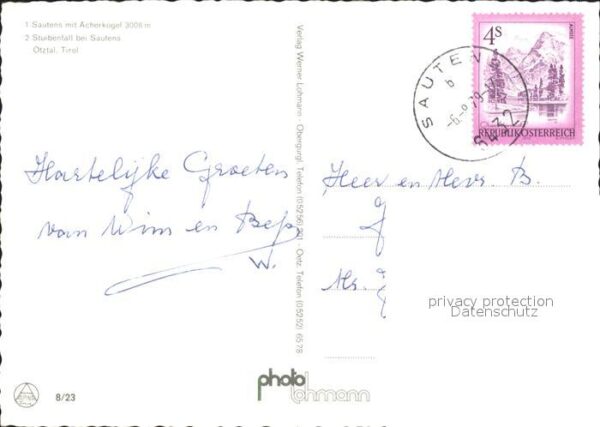 1 Sautens mit Acherkogel 3008 m
2 Stuibenfall bei Sautens
Ötztal, Tirol
Verlag Werner Lohmann - Obergurgl, Telefon (05256) 301 - Oetz, Telefon (05252) 6578
4S
ALMSEE
REPUBLIK ÖSTERREICH
SAUTENS
b
6432
Hartelijke Groeten
van Wim en Bep
W.
Heer en Mevr. B.
privacy protection
Datenschutz
photo
lohmann
8/23